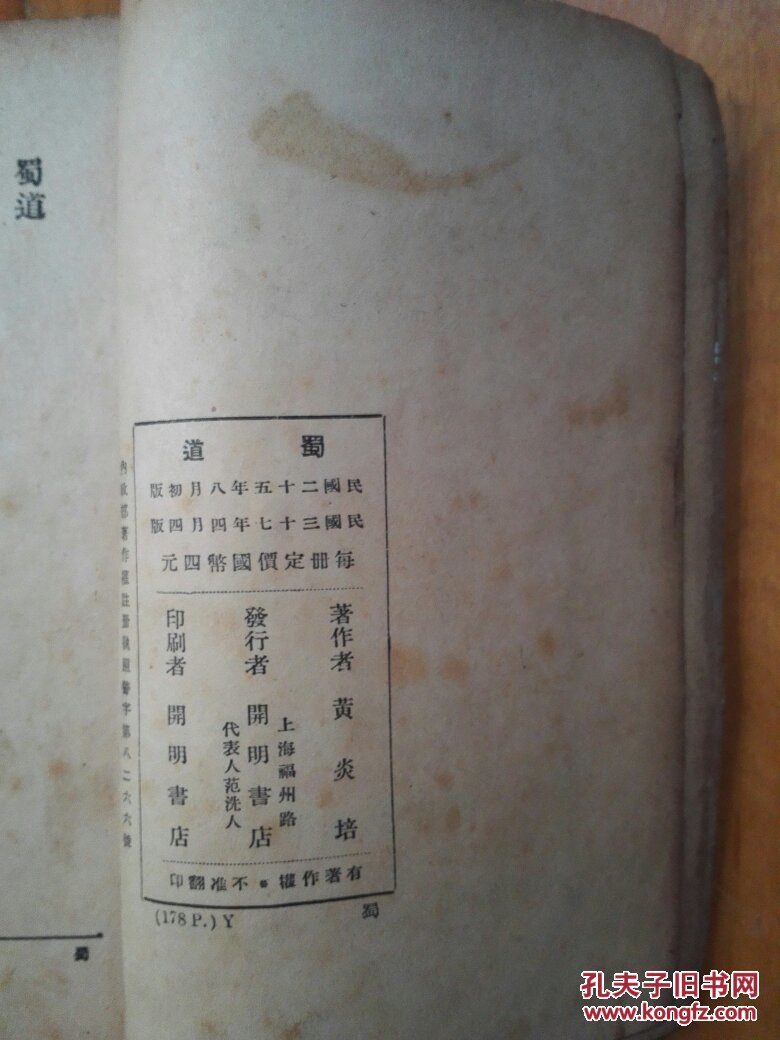 蜀道
蜀道
民國二十五年八月初版
民國三十七年四月四版
每冊定價國幣四元
著作者 黃炎培
發行者 開明書店
上海福州路
代表人范洗人
印刷者 開明書店
有著作權 不准翻印
內政部著作權註冊執照警字第八二六六號
(178 P.) Y
蜀
蜀
孔夫子旧书网
www.kongfz.com